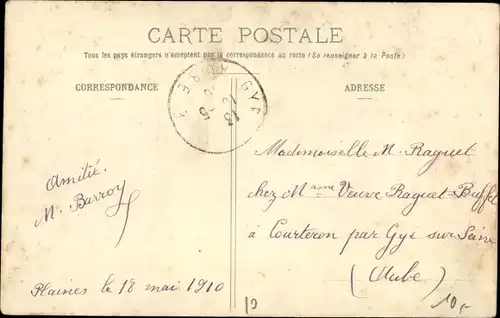 CARTE POSTALE
Tous les pays étrangers n'acceptent pas la correspondance au recto (Se renseigner à la Poste)
CORRESPONDANCE
ADRESSE
GYE
Amitié.
M. Barroy
Plaines le 18 mai 1910
Mademoiselle M. Raguet
chez Mame Veuve Raguet-Buffet
à Courteron par Gye sur Seine
(Aube)
10,-